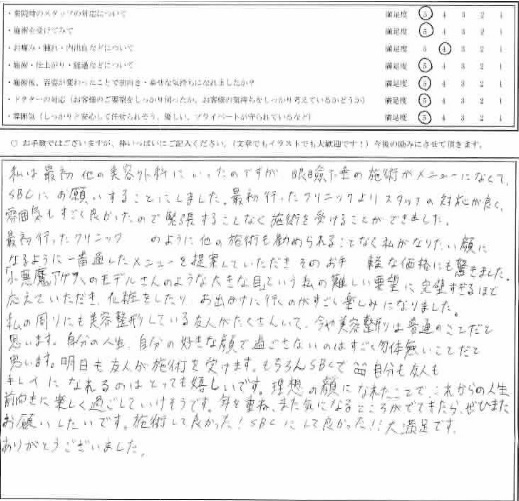 ・来院時のスタッフの対応について 満足度 5 4 3 2 1
・施術を受けてみて 満足度 5 4 3 2 1
・お痛み・腫れ・内出血などについて 満足度 5 4 3 2 1
・施術・仕上がり・経過などについて 満足度 5 4 3 2 1
・施術後、容姿が変わったことで前向き・幸せな気持ちになれましたか? 満足度 5 4 3 2 1
・ドクターの対応(お客様のご要望をしっかり伺ったか、お客様の気持ちをしっかり考えているかどうか) 満足度 5 4 3 2 1
・雰囲気(しっかりと安心して任せられそう、優しい、プライベートが守られているなど) 満足度 5 4 3 2 1
○ お手数ではございますが、枠いっぱいにご記入ください。(文章でもイラストでも大歓迎です!)今後の励みにさせて頂きます。
私は最初他の美容外科にいったのですが眼瞼下垂の施術がメニューになくて、
SBCにお願いすることにしました。最初行ったクリニックよりスタッフの対応が良く、
雰囲気もすごく良かったので緊張することなく施術を受けることができました。
最初行ったクリニック のように他の施術も勧められることなく私がなりたい顔に
なるように一番適したメニューを提案していただきそのお手 軽な価格にも驚きました。
「小悪魔アゲハ」のモデルさんのような大きな目という私の難しい要望に完璧すぎるほど
応えていただき、化粧をしたり お出かけに行くのがすごく楽しみになりました。
私の周りにも美容整形している友人がたくさんいて、今や美容整形は普通のことだと
思います。自分の人生、自分の好きな顔で過ごせないのはすごく勿体無いことだと
思います。明日も友人が施術を受けます。もちろんSBCで 自分も友人も
キレイになれるのはとっても嬉しいです。理想の顔になれたことで、これからの人生
前向きに楽しく過ごしていけそうです。年を重ね、また気になるところがでてきたら、ぜひまた
お願いしたいです。施術して良かった!SBCにして良かった!!大満足です。
ありがとうございました。